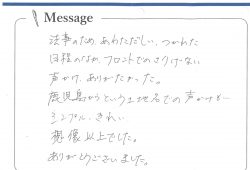 Message
法事のため、あわただしい、つかれた
日程のなか、フロントでのさりげない
声かけ、ありがたかった。
鹿児島からという土地名での声かけも…
シンプル、きれい
想像以上でした。
ありがとうございました。